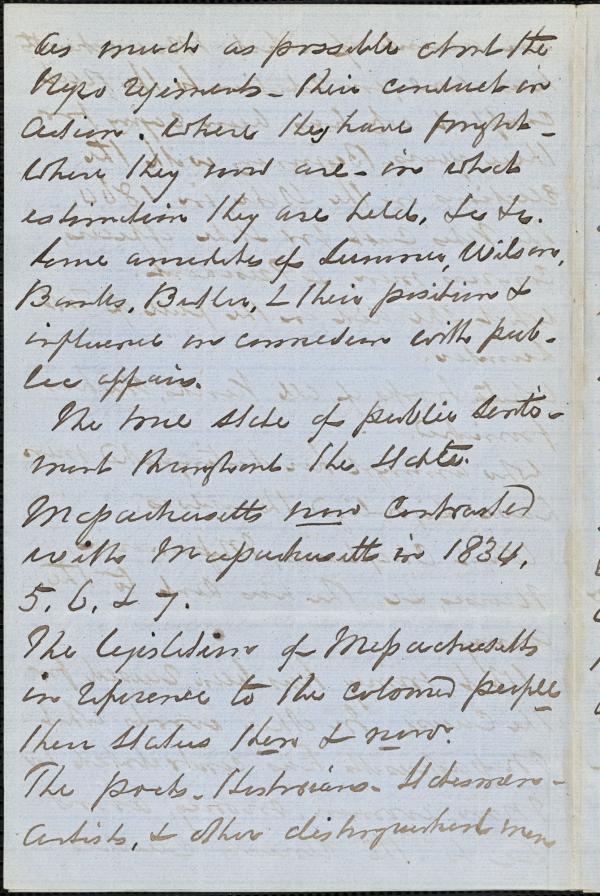 as much as possible about the
Negro regiments - their conduct in
action. Where they have fought -
Where they now are - in what
estimation they are held, &c &c.
Some anecdotes of Sumner, Wilson,
Banks, Butler, & their position &
influence in connection with pub-
lic affairs.
The true state of public senti-
ment throughout the States.
Massachusetts now contrasted
with Massachusetts in 1834,
5, 6, & 7.
The legislation of Massachusetts
in reference to the colored people
their status then & now.
The poets - Historians - Statesmen -
Artists, & other distinguished men